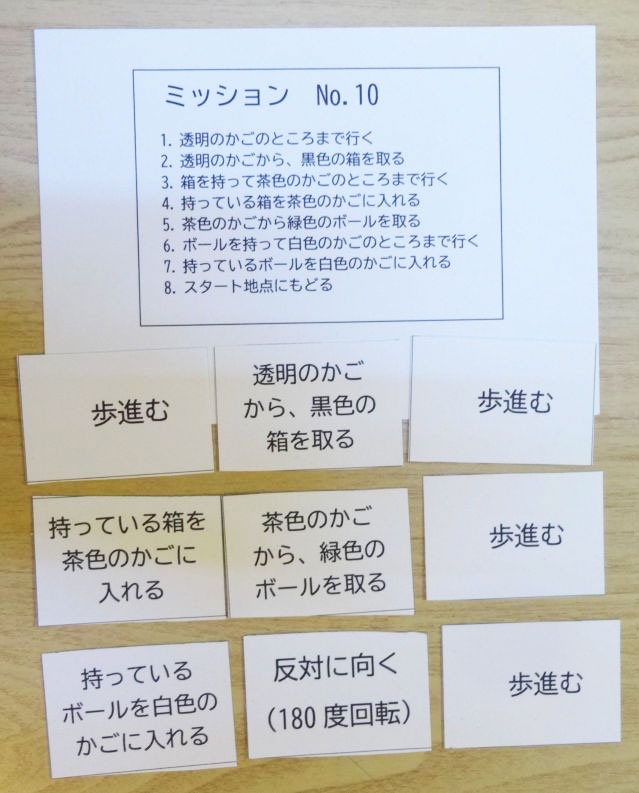 ミッション No.10
1. 透明のかごのところまで行く
2. 透明のかごから、黒色の箱を取る
3. 箱を持って茶色のかごのところまで行く
4. 持っている箱を茶色のかごに入れる
5. 茶色のかごから緑色のボールを取る
6. ボールを持って白色のかごのところまで行く
7. 持っているボールを白色のかごに入れる
8. スタート地点にもどる
歩進む
透明のかご
から、黒色の
箱を取る
歩進む
持っている箱を
茶色のかごに
入れる
茶色のかご
から、緑色の
ボールを取る
歩進む
持っている
ボールを白色の
かごに入れる
反対に向く
(180度回転)
歩進む